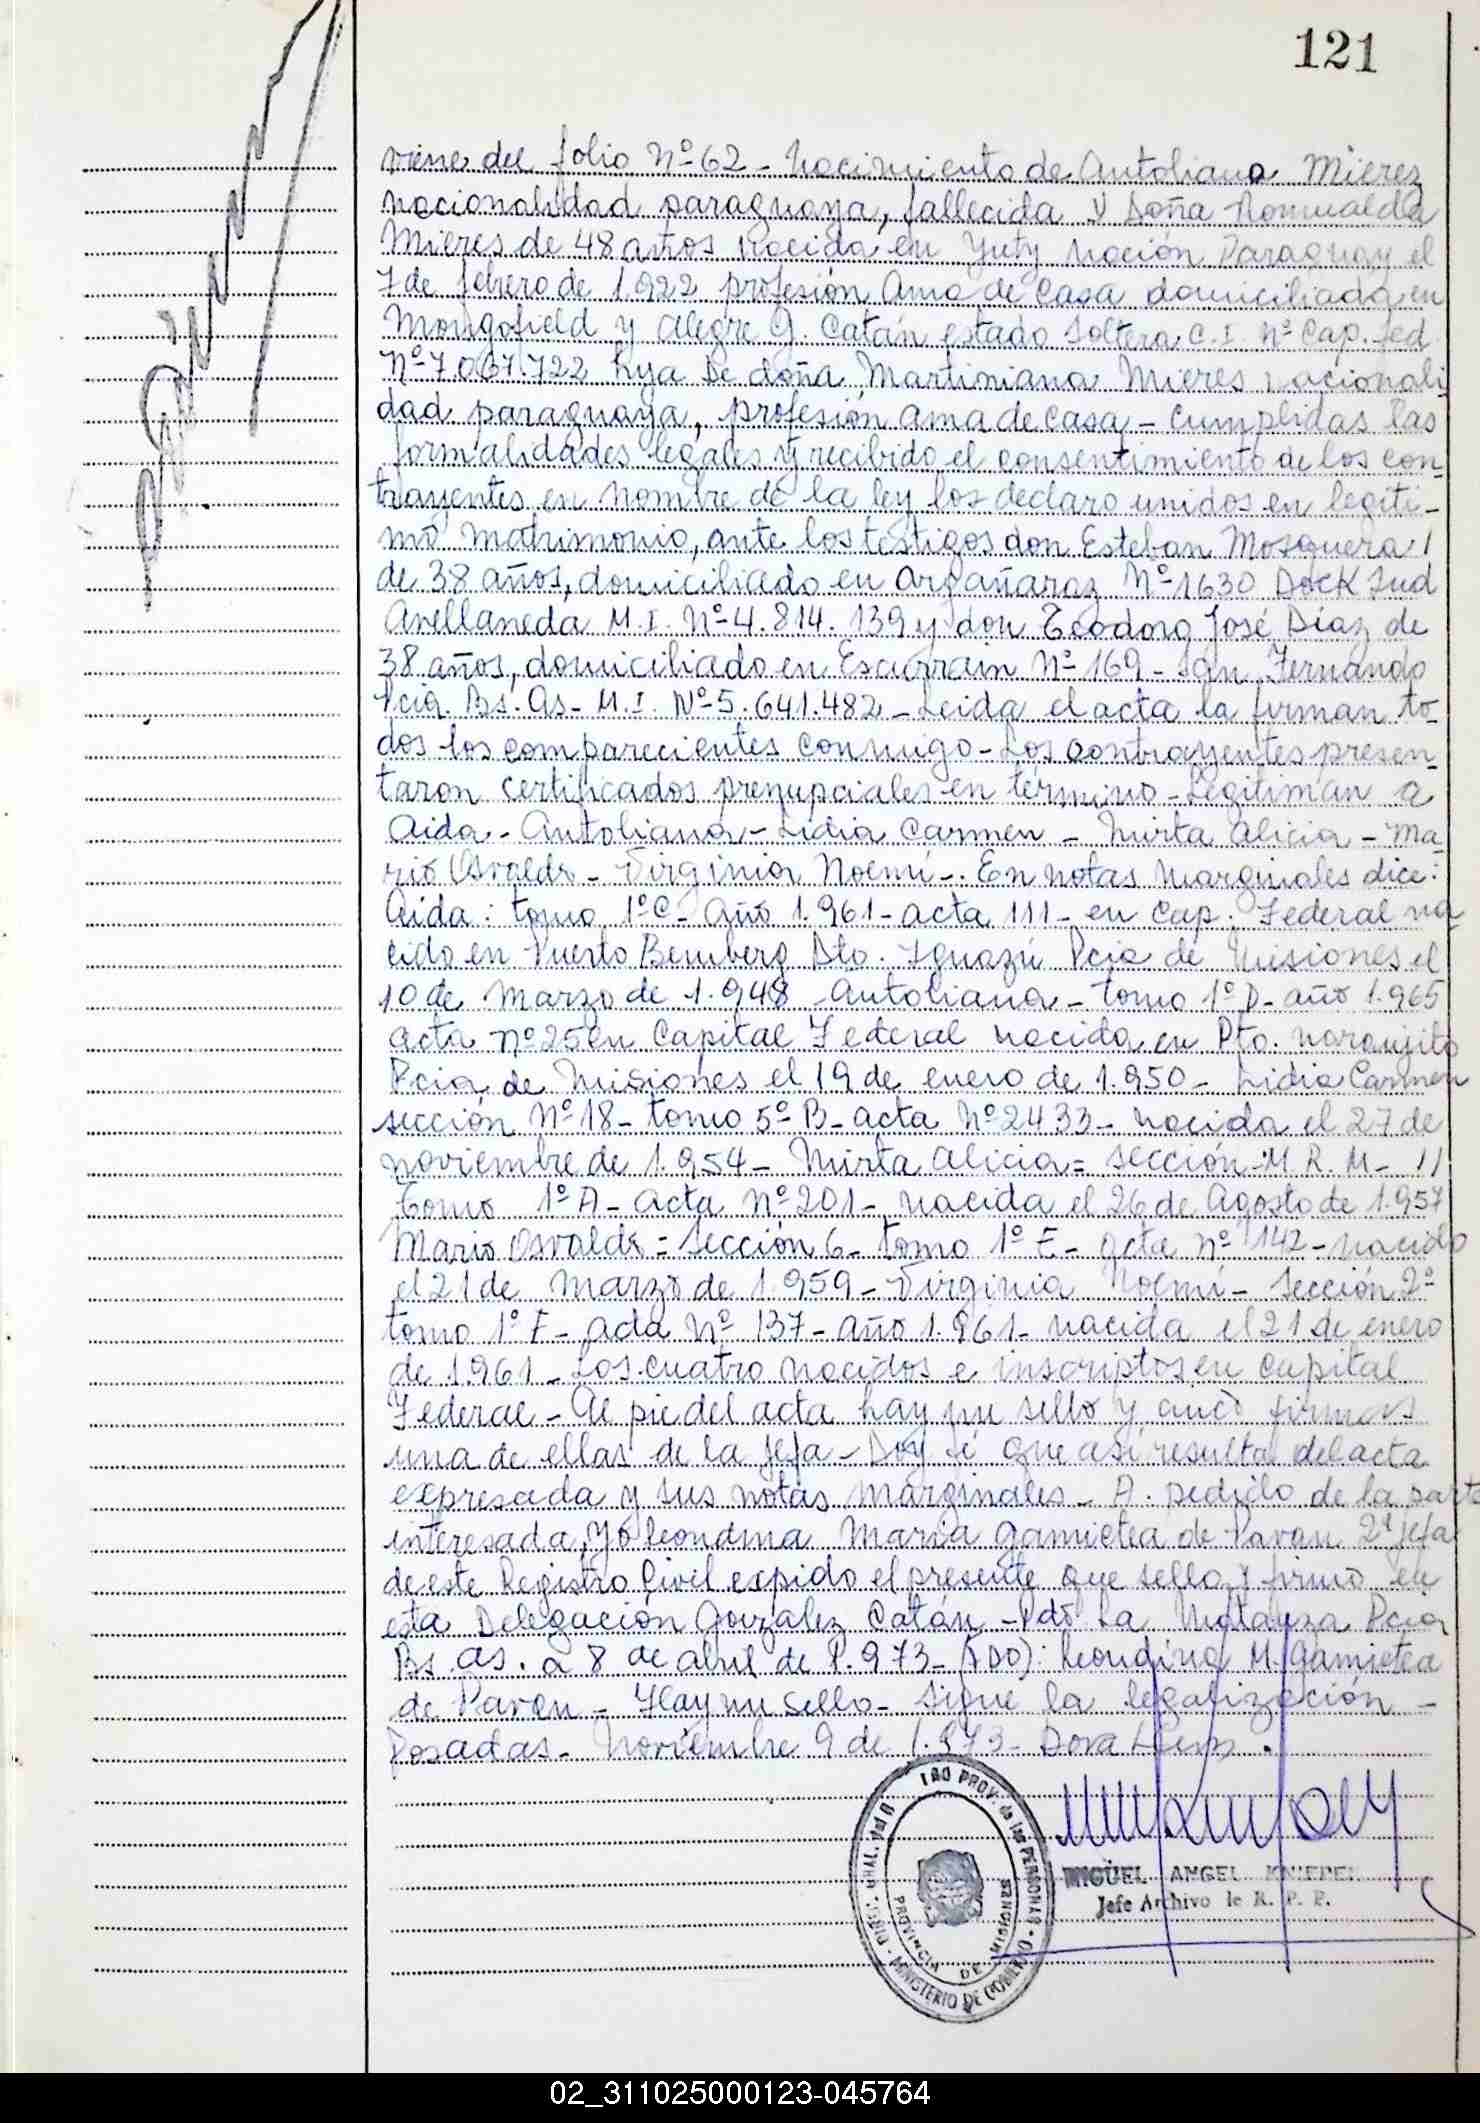 121
viene del folio Nº 62 - Nacimiento de Antoliana Mierez
nacionalidad paraguaya, fallecida y Doña Romualda
Mieres de 48 años nacida en Yuty nación Paraguay el
7 de febrero de 1.922 profesión Ama de Casa domiciliada en
Mongofield y Alegre G. Catán estado soltera C.I. Nº Cap. Fed
Nº 7.067.722 hija De doña Martiniana Mieres nacionali
dad paraguaya, profesión ama de casa - Cumplidas las
formalidades legales y recibido el consentimiento de los con-
trayentes en nombre de la ley los declaro unidos en legíti-
mo matrimonio, ante los testigos don Esteban Mosquera
de 38 años, domiciliado en Argañaraz Nº 1630 Dock Sud
Avellaneda M.I. Nº 4.814.139 y don Teodoro José Díaz de
38 años, domiciliado en Escurrain Nº 169 - San Fernando
Pcia. Bs. As - M.I. Nº 5.641.482 - Leida el acta la firman to-
dos los comparecientes conmigo - Los contrayentes presen-
taron certificados prenupciales en término - Legitiman a
Aida - Antoliana - Lidia Carmen - Mirta Alicia - Ma-
rio Osvaldo - Virginia Noemí -. En notas marginales dice:
Aida: tomo 1º C - año 1.961 - acta 111 - en Cap. Federal na
cido en Puerto Bemberg Dto. Iguazú Pcia de Misiones el
10 de Marzo de 1.948 - Antoliana - tomo 1º D - año 1.965
acta nº 25 en Capital Federal nacida en Pto. Naranjito
Pcia de Misiones el 19 de enero de 1.950 - Lidia Carmen
sección Nº 18 - tomo 5º B - acta Nº 2433 - nacida el 27 de
noviembre de 1.954 - Mirta Alicia = sección - M.R.M - 11
tomo 1º A - acta Nº 201 - nacida el 26 de Agosto de 1.957
Mario Osvaldo = sección 6 - tomo 1º E - acta nº 142 - nacido
el 21 de Marzo de 1.959 - Virginia Noemí - sección 2º
tomo 1º F - acta Nº 137 - año 1.961 - nacida el 21 de enero
de 1.961 - Los cuatro nacidos e inscriptos en Capital
Federal - Al pie del acta hay un sello y cinco firmas
una de ellas de la Jefa - Doy fé que así resulta del acta
expresada y sus notas marginales - A pedido de la parte
interesada, yo Leondina Maria Gamietea de Pavan 2ª Jefa
de este Registro Civil expido el presente que sello y firmo en
esta Delegación González Catán - Pdo La Matanza Pcia
Bs. As. a 8 de abril de 1.973 - (FDO): Leondina M. Gamietea
de Pavan - Hay un sello - Sigue la legalización -
Posadas - Noviembre 9 de 1.973 - Dora
MIGUEL ANGEL KNIEPEL
Jefe Archivo de R. P. P.
PROV. de las PERSONAS
MINISTERIO DE GOBIERNO
PROVINCIA DE MISIONES
02_311025000123-045764